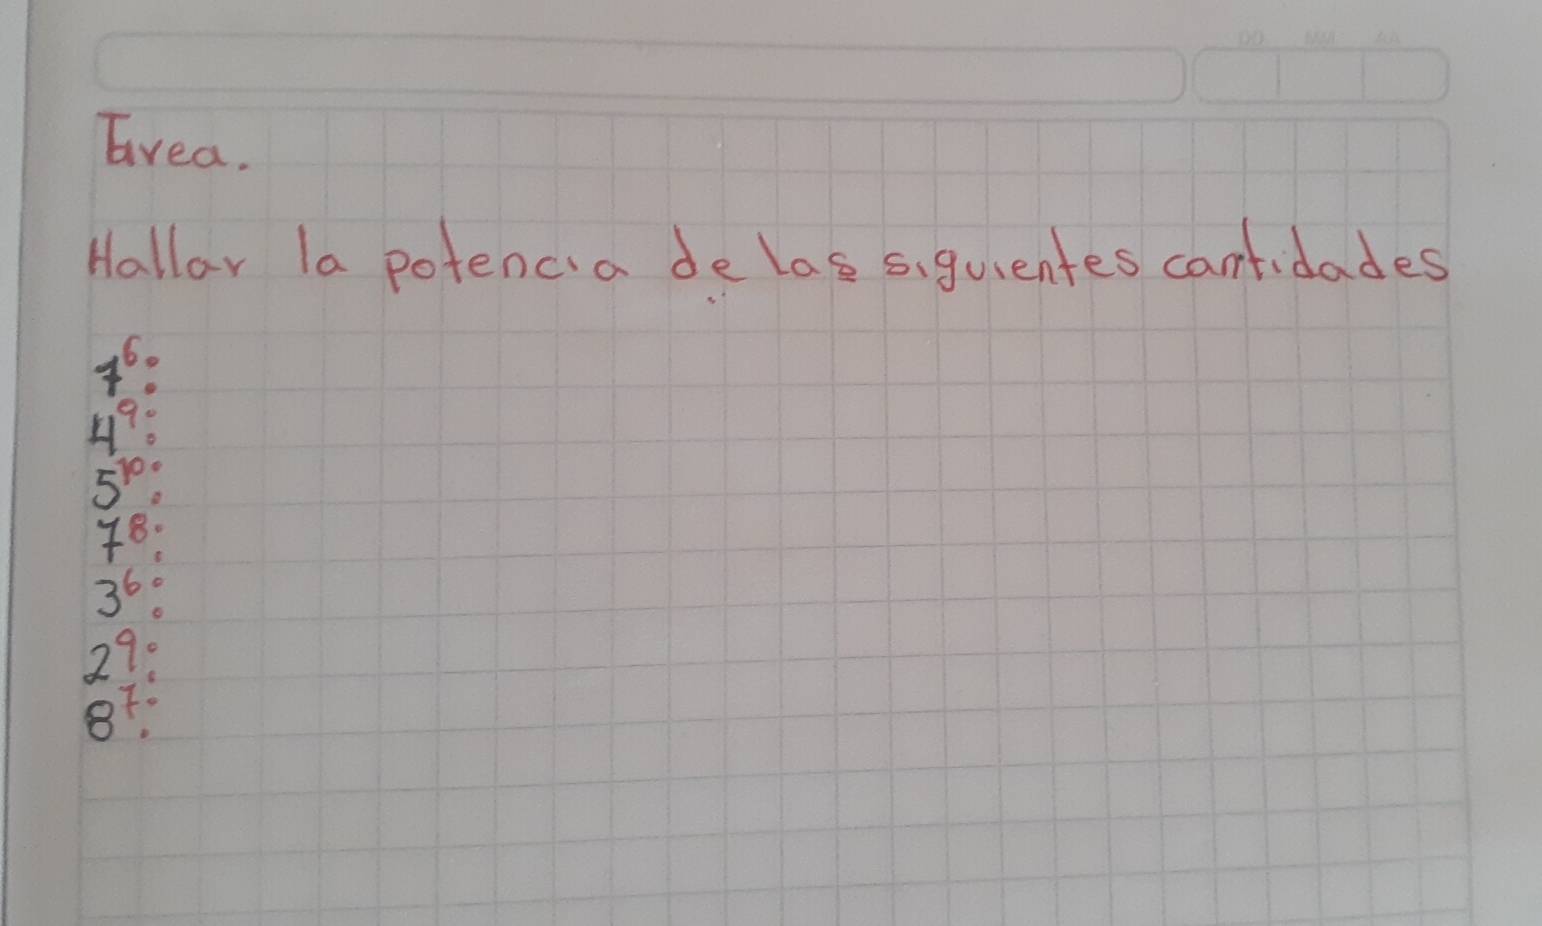 DD MM AA
Tarea.
Hallar la potencia de las siguientes cantidades
7⁶:
4⁹:
5¹⁰:
7⁸:
3⁶:
2⁹:
8⁷: